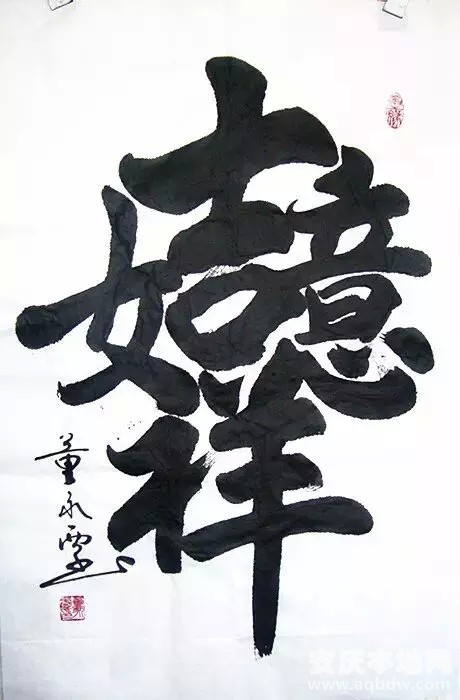 吉祥如意
董永
安庆本地网
www.aqbdw.com